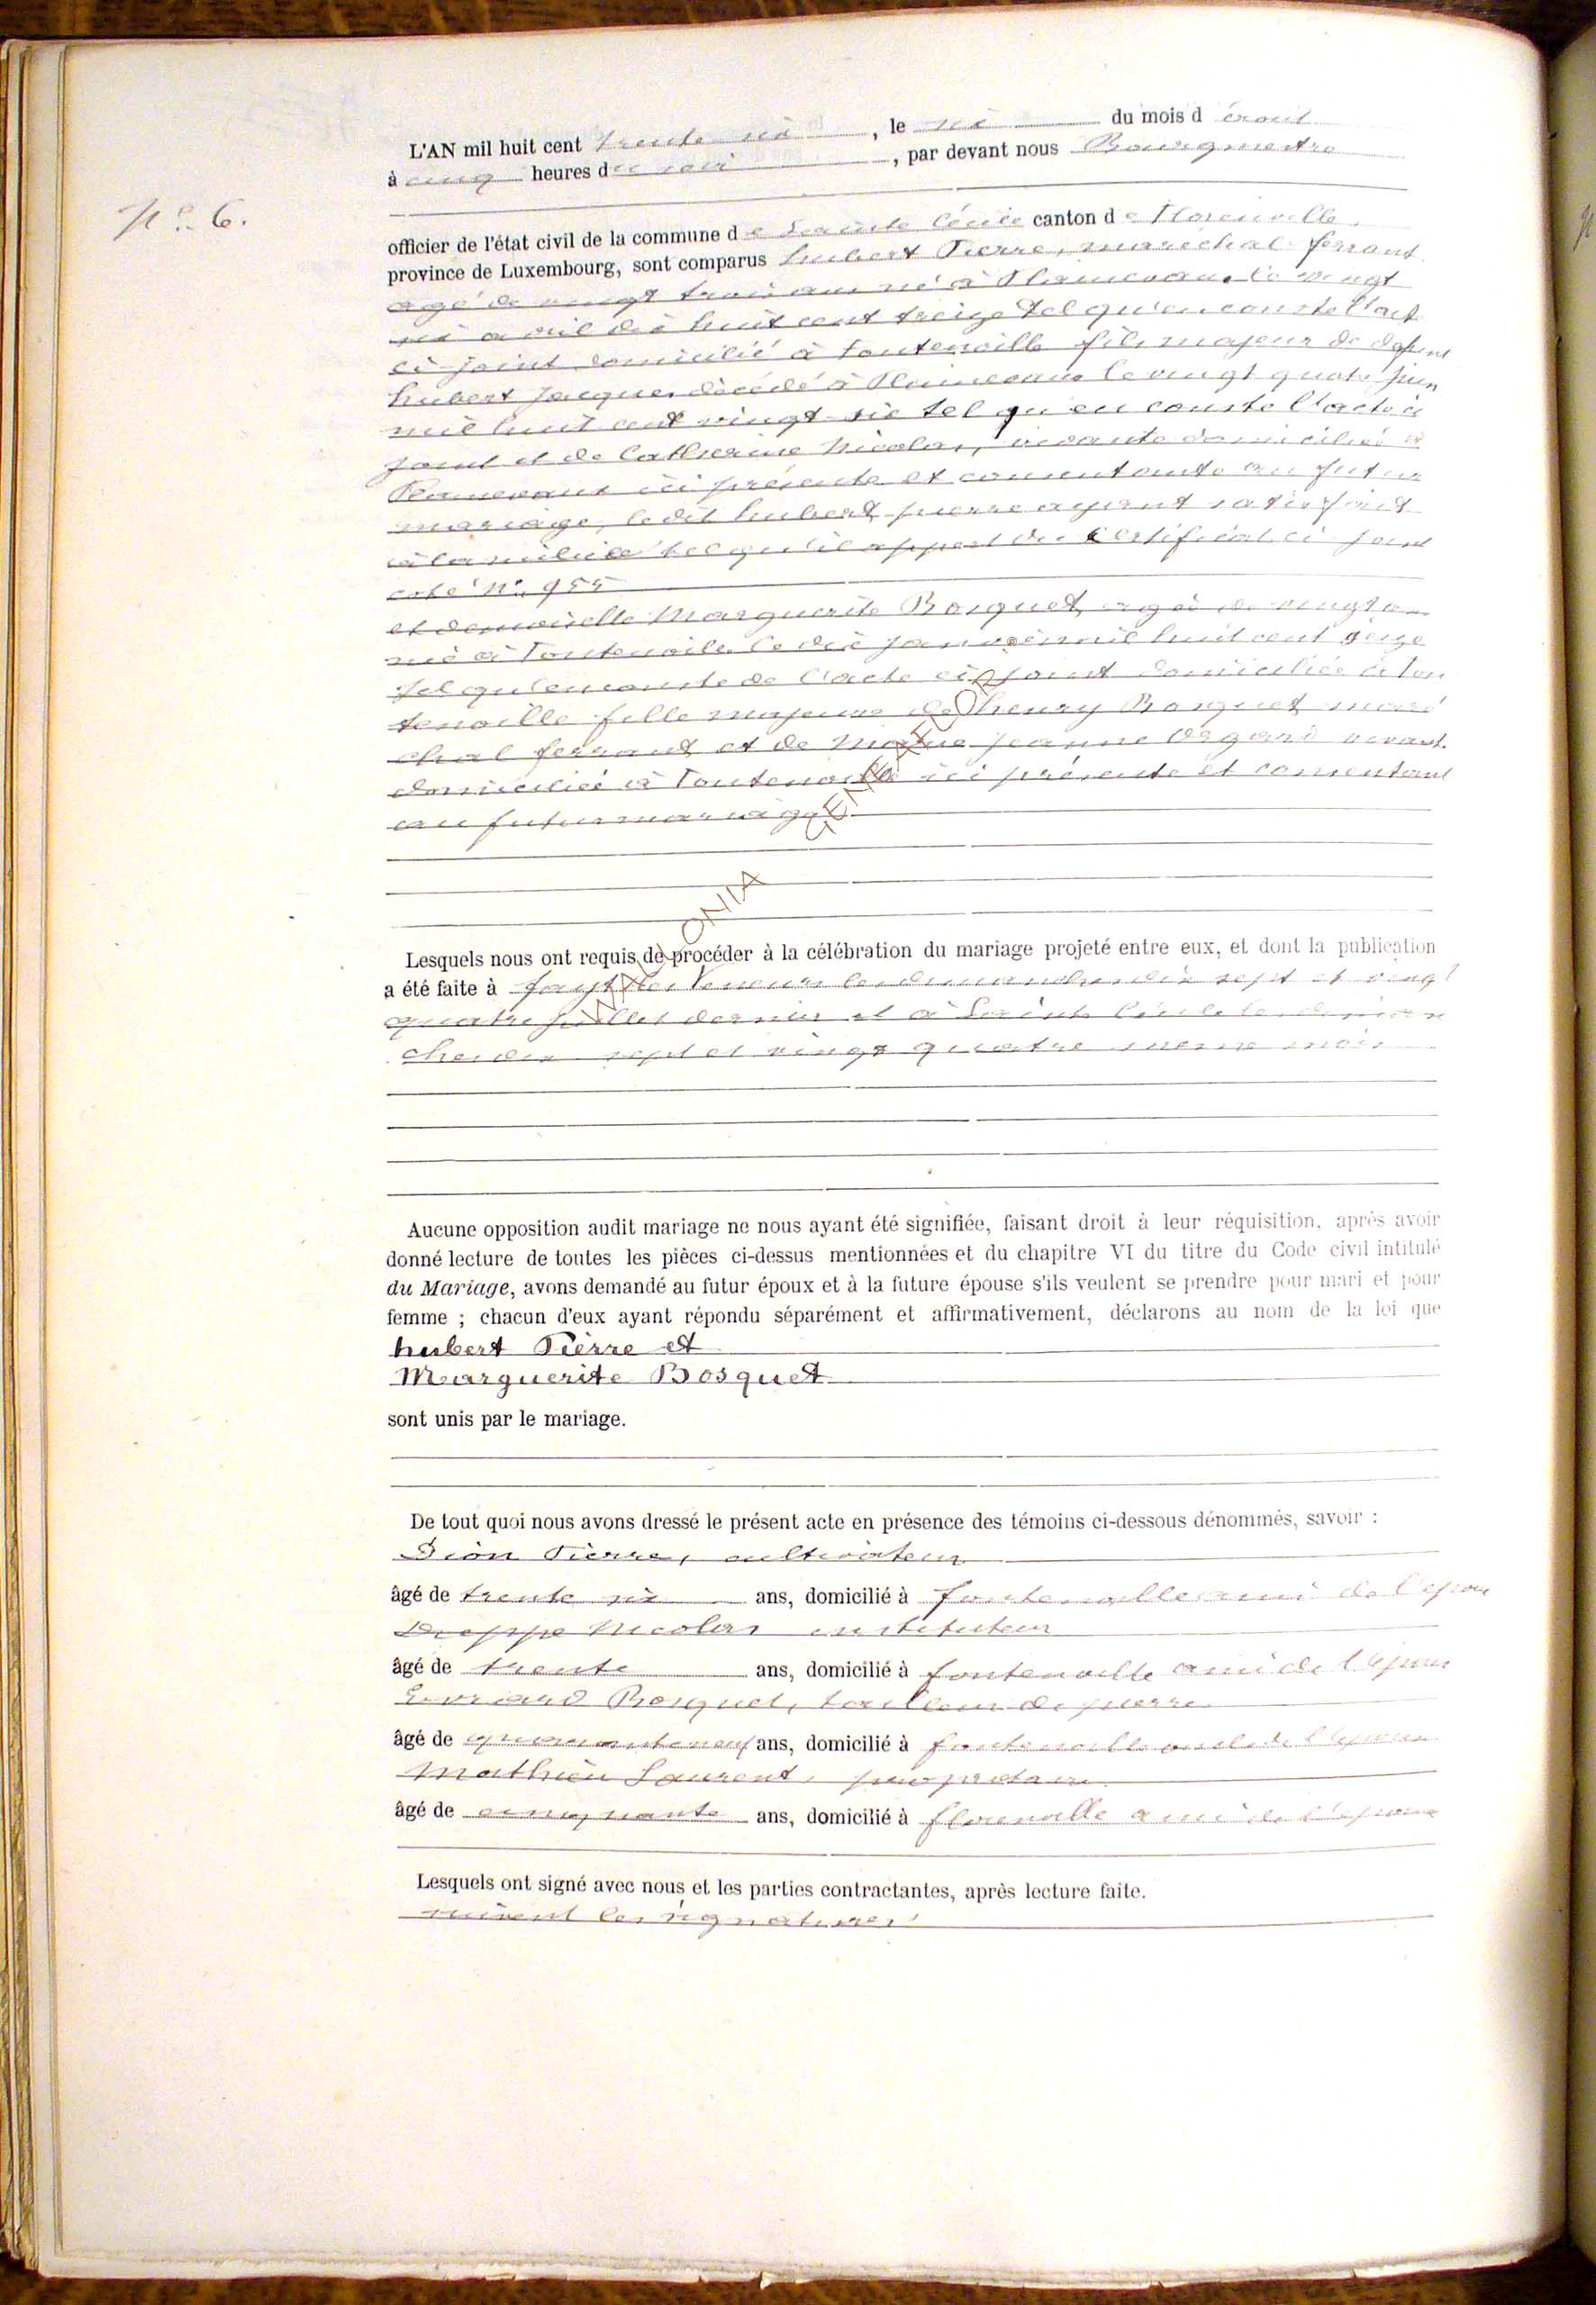 L'AN mil huit cent trente six, le six du mois d'aout
à cinq heures du soir, par devant nous Bourgmestre
N° 6.
officier de l'état civil de la commune de Sainte Cécile canton de Florenville
province de Luxembourg, sont comparus hubert Pierre, maréchal-ferrant
agé de vingt trois ans né à le vingt
six avril dix huit cent treize tel qu'en conste l'acte
ci-joint domicilié à fontenoille fils majeur de défunt
hubert Jacques décédé à le vingt quatre juin
mil huit cent vingt-six tel qu'en conste l'acte ci
joint et de Catherine Nicolas, vivante domiciliée à
ici présente et consentante au futur
mariage, ledit hubert pierre ayant satisfait
à la milice tel qu'il appert du certificat ci joint
coté N° 955
et demoiselle Marguerite Bosquet agée de vingt ans
née à fontenoille le dix janvier mil huit cent seize
tel qu'en conste de l'acte ci joint domiciliée à fon
tenoille fille majeure de henry Bosquet maré
chal ferrant et de Marie jeanne vivant
domiciliée à fontenoille ici présente et consentant
au futur mariage.
WALLONIA GENEAFLOR
Lesquels nous ont requis de procéder à la célébration du mariage projeté entre eux, et dont la publication
a été faite à fayt les Veneurs les dimanches dix sept et vingt
quatre juillet dernier et à Sainte Cécile les diman
ches dix sept et vingt quatre meme mois
Aucune opposition audit mariage ne nous ayant été signifiée, faisant droit à leur réquisition, après avoir
donné lecture de toutes les pièces ci-dessus mentionnées et du chapitre VI du titre du Code civil intitulé
du Mariage, avons demandé au futur époux et à la future épouse s'ils veulent se prendre pour mari et pour
femme ; chacun d'eux ayant répondu séparément et affirmativement, déclarons au nom de la loi que
hubert Pierre et
Marguerite Bosquet
sont unis par le mariage.
De tout quoi nous avons dressé le présent acte en présence des témoins ci-dessous dénommés, savoir :
Dion Pierre, cultivateur
âgé de trente six ans, domicilié à fontenoille ami de l'epoux
Dieppe Nicolas instituteur
âgé de trente ans, domicilié à fontenoille ami de l'epoux
Bosquet, tailleur de pierre
âgé de quarante neuf ans, domicilié à fontenoille oncle de l'epouse
Mathieu Laurent, propriétaire
âgé de cinquante ans, domicilié à florenville ami de l'epoux
Lesquels ont signé avec nous et les parties contractantes, après lecture faite.
suivent les signatures